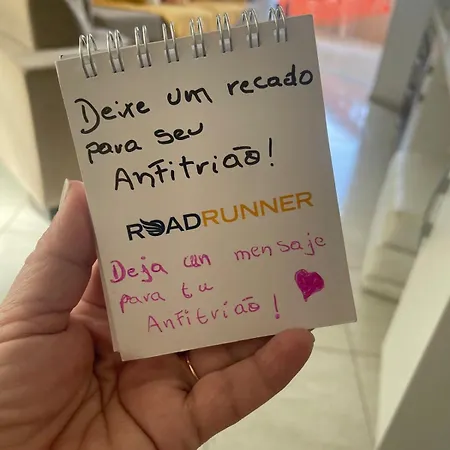 Deixe um recado
para seu
Anfitrião!
ROADRUNNER
Deja un mensaje
para tu
Anfitrião!